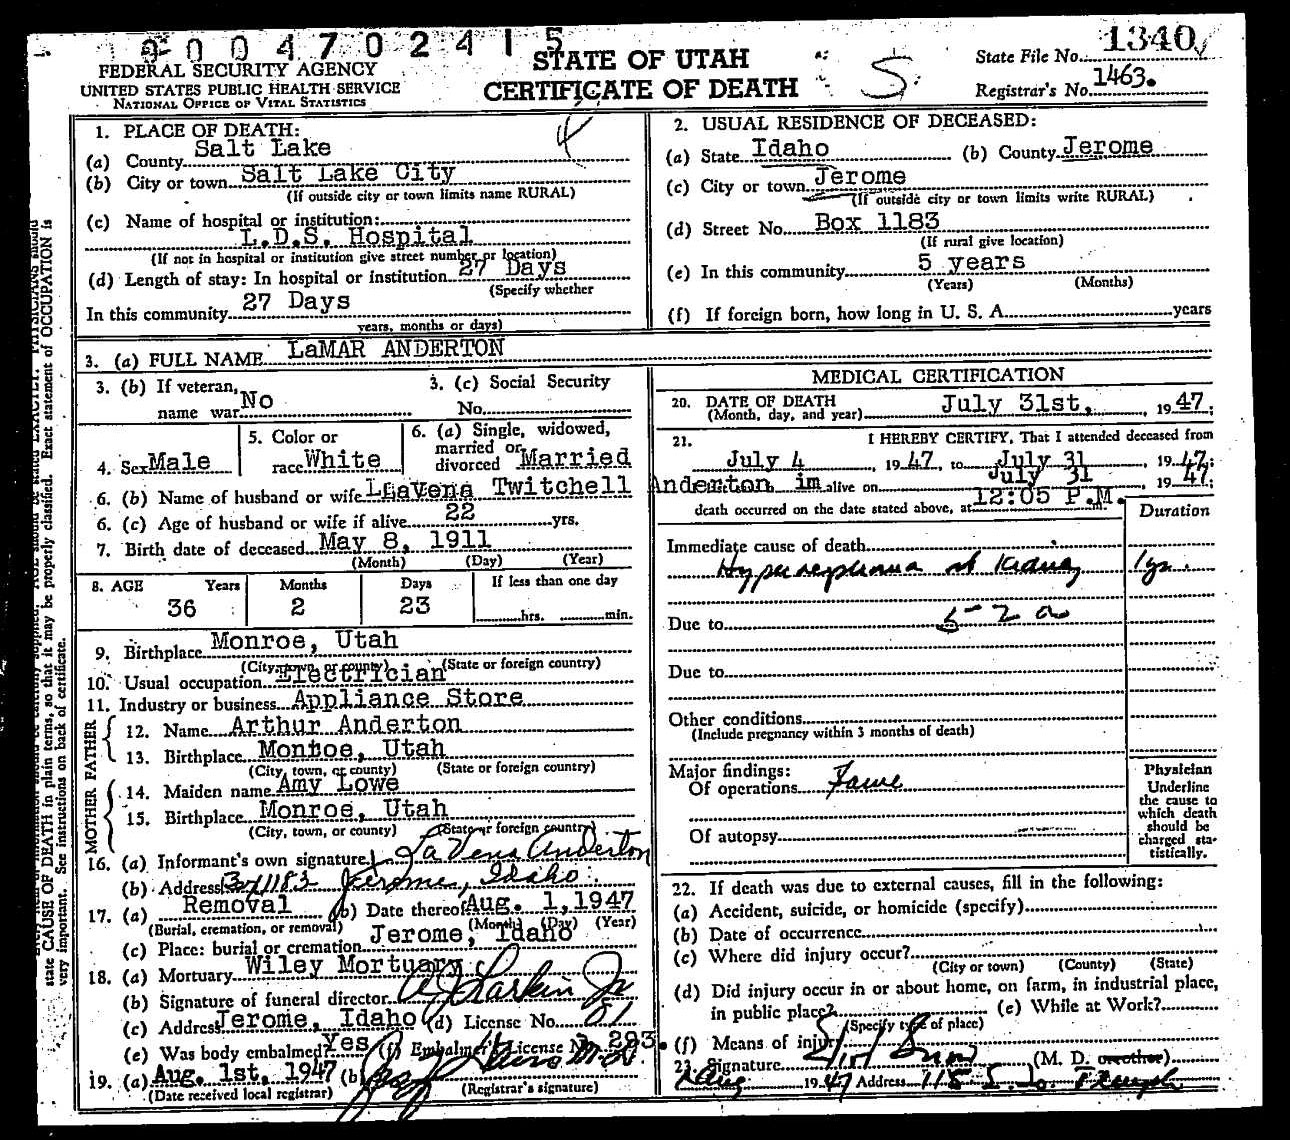 9004702415
FEDERAL SECURITY AGENCY
UNITED STATES PUBLIC HEALTH SERVICE
NATIONAL OFFICE OF VITAL STATISTICS
STATE OF UTAH
CERTIFICATE OF DEATH
S
State File No. 1340
Registrar's No. 1463.
1. PLACE OF DEATH:
(a) County Salt Lake
(b) City or town Salt Lake City
(If outside city or town limits name RURAL)
(c) Name of hospital or institution:
L.D.S. Hospital
(If not in hospital or institution give street number or location)
(d) Length of stay: In hospital or institution 27 Days
(Specify whether
In this community 27 Days
years, months or days)
2. USUAL RESIDENCE OF DECEASED:
(a) State Idaho (b) County Jerome
(c) City or town Jerome
(If outside city or town limits write RURAL)
(d) Street No. Box 1183
(If rural give location)
(e) In this community 5 years
(Years) (Months)
(f) If foreign born, how long in U. S. A. years
3. (a) FULL NAME LaMAR ANDERTON
3. (b) If veteran, name war No
3. (c) Social Security No.
4. Sex Male
5. Color or race White
6. (a) Single, widowed, married or divorced Married
6. (b) Name of husband or wife LaVena Twitchell
6. (c) Age of husband or wife if alive 22 yrs.
7. Birth date of deceased May 8, 1911
(Month) (Day) (Year)
8. AGE Years Months Days If less than one day
36 2 23 hrs. min.
9. Birthplace Monroe, Utah
(City, town, or county) (State or foreign country)
10. Usual occupation Electrician
11. Industry or business Appliance Store
FATHER
12. Name Arthur Anderton
13. Birthplace Monroe, Utah
(City, town, or county) (State or foreign country)
MOTHER
14. Maiden name Amy Lowe
15. Birthplace Monroe, Utah
(City, town, or county) (State or foreign country)
16. (a) Informant's own signature LaVena Anderton
(b) Address Bx 1183 Jerome, Idaho
17. (a) Removal (b) Date thereof Aug. 1, 1947
(Burial, cremation, or removal) (Month) (Day) (Year)
(c) Place: burial or cremation Jerome, Idaho
18. (a) Mortuary Wiley Mortuary
(b) Signature of funeral director Larkin Jr
(c) Address Jerome, Idaho (d) License No. 81
(e) Was body embalmed? Yes (f) Embalmer's License No. 293.
19. (a) Aug. 1st, 1947 (b) M.D.
(Date received local registrar) (Registrar's signature)
MEDICAL CERTIFICATION
20. DATE OF DEATH
(Month, day, and year) July 31st, 1947;
21. I HEREBY CERTIFY, That I attended deceased from
July 4, 1947, to July 31, 1947;
Anderton im alive on July 31, 1947;
death occurred on the date stated above, at 12:05 P.M. m.
Duration
Immediate cause of death
Hypernephroma of Kidney 1 yr.
Due to 52a
Due to
Other conditions
(Include pregnancy within 3 months of death)
Major findings:
Of operations
Of autopsy
Physician
Underline
the cause to
which death
should be
charged sta-
tistically.
22. If death was due to external causes, fill in the following:
(a) Accident, suicide, or homicide (specify)
(b) Date of occurrence
(c) Where did injury occur?
(City or town) (County) (State)
(d) Did injury occur in or about home, on farm, in industrial place,
in public place? (e) While at Work?
(Specify type of place)
(f) Means of injury
23. Signature (M. D. or other)
Aug 1947 Address 115 So. Temple
state CAUSE OF DEATH in plain terms, so that it may be properly classified. Exact statement of OCCUPATION is
very important. See instructions on back of certificate.